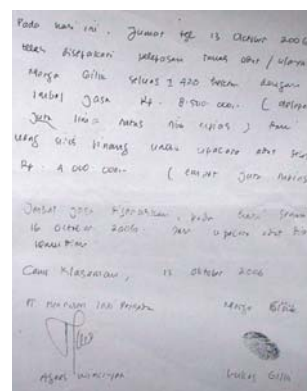 Pada hari ini, Jumat tgl 13 Oktober 2006
telah disepakati pelepasan tanah adat / ulayat
Marga Gilik seluas ± 420 hektar dengan
imbal jasa Rp. 8.500.000.- ( delapan
juta lima ratus ribu rupiah ) dan
uang sirih pinang untuk upacara adat
Rp. 4.000.000.- ( empat juta rupiah
Imbal jasa diserahkan, pada hari Senin
16 October 2006 dan upacara adat
Klasaman, 13 oktober 2006
PT. Inti Persada Marga Gilik
Agus Lukas Gilik